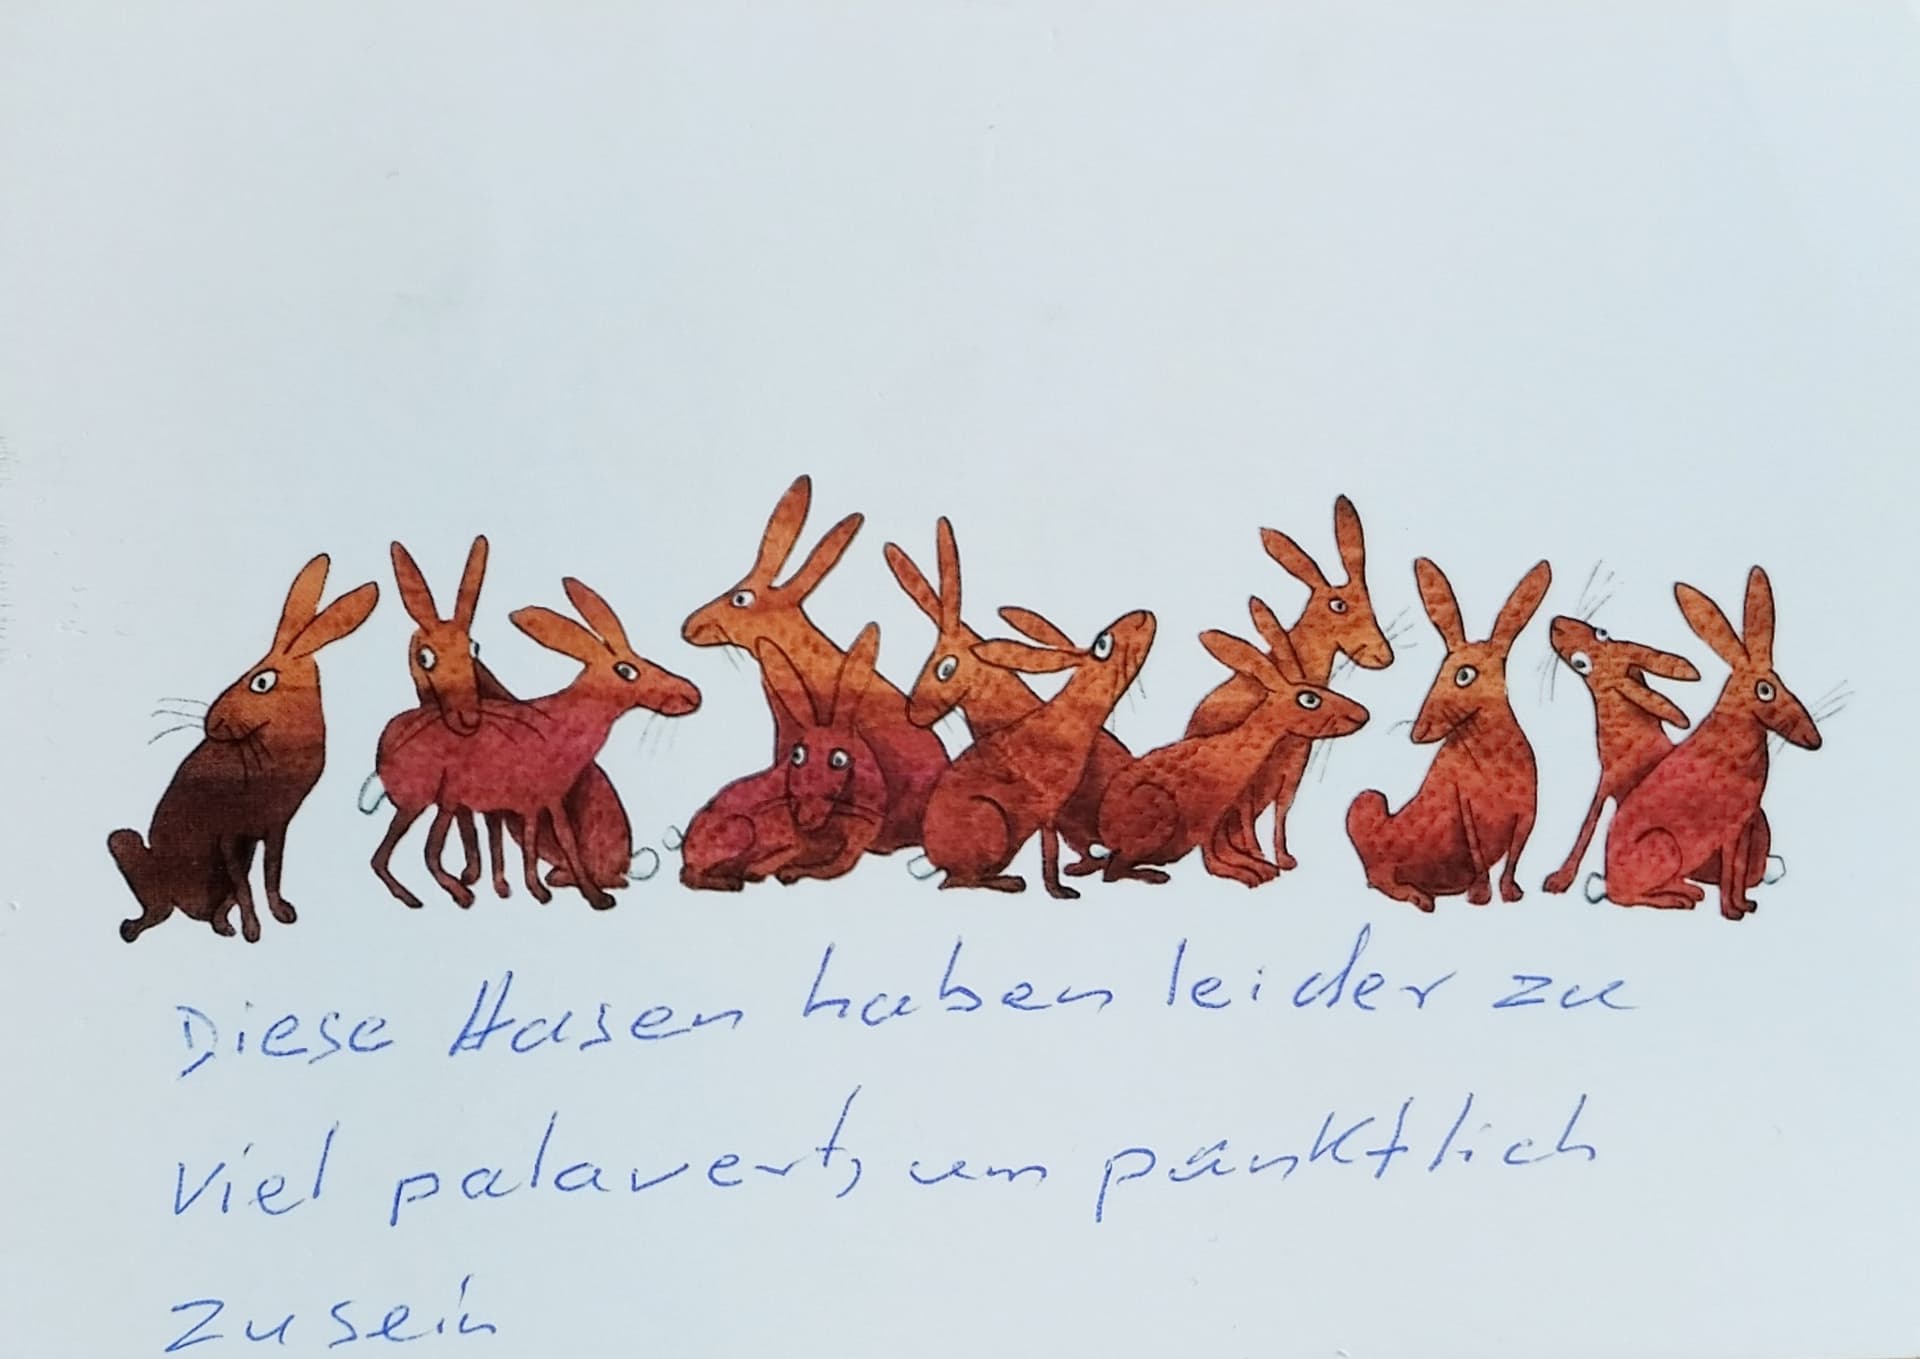 Diese Hasen haben leider zu
viel palavert, um pünktlich
zu sein